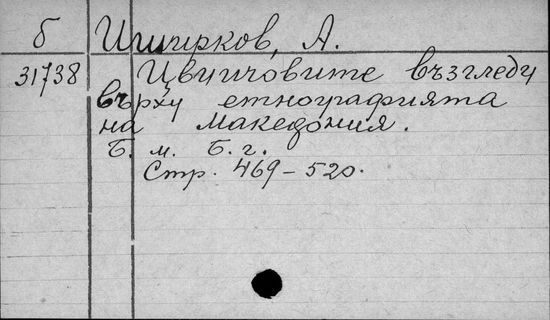 б Иширков, А.
31738 Цвиичовите възгледи
върху етнографията
на Македония.
Б. м. Б. г.
Стр. 469-520.